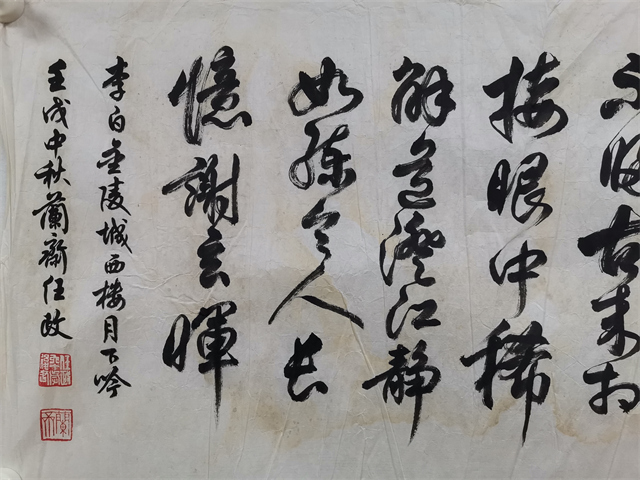 不归古来相
接眼中稀
解道澄江静
如練令人長
憶謝玄暉
李白金陵城西楼月下吟
壬戌中秋蘭齋任政